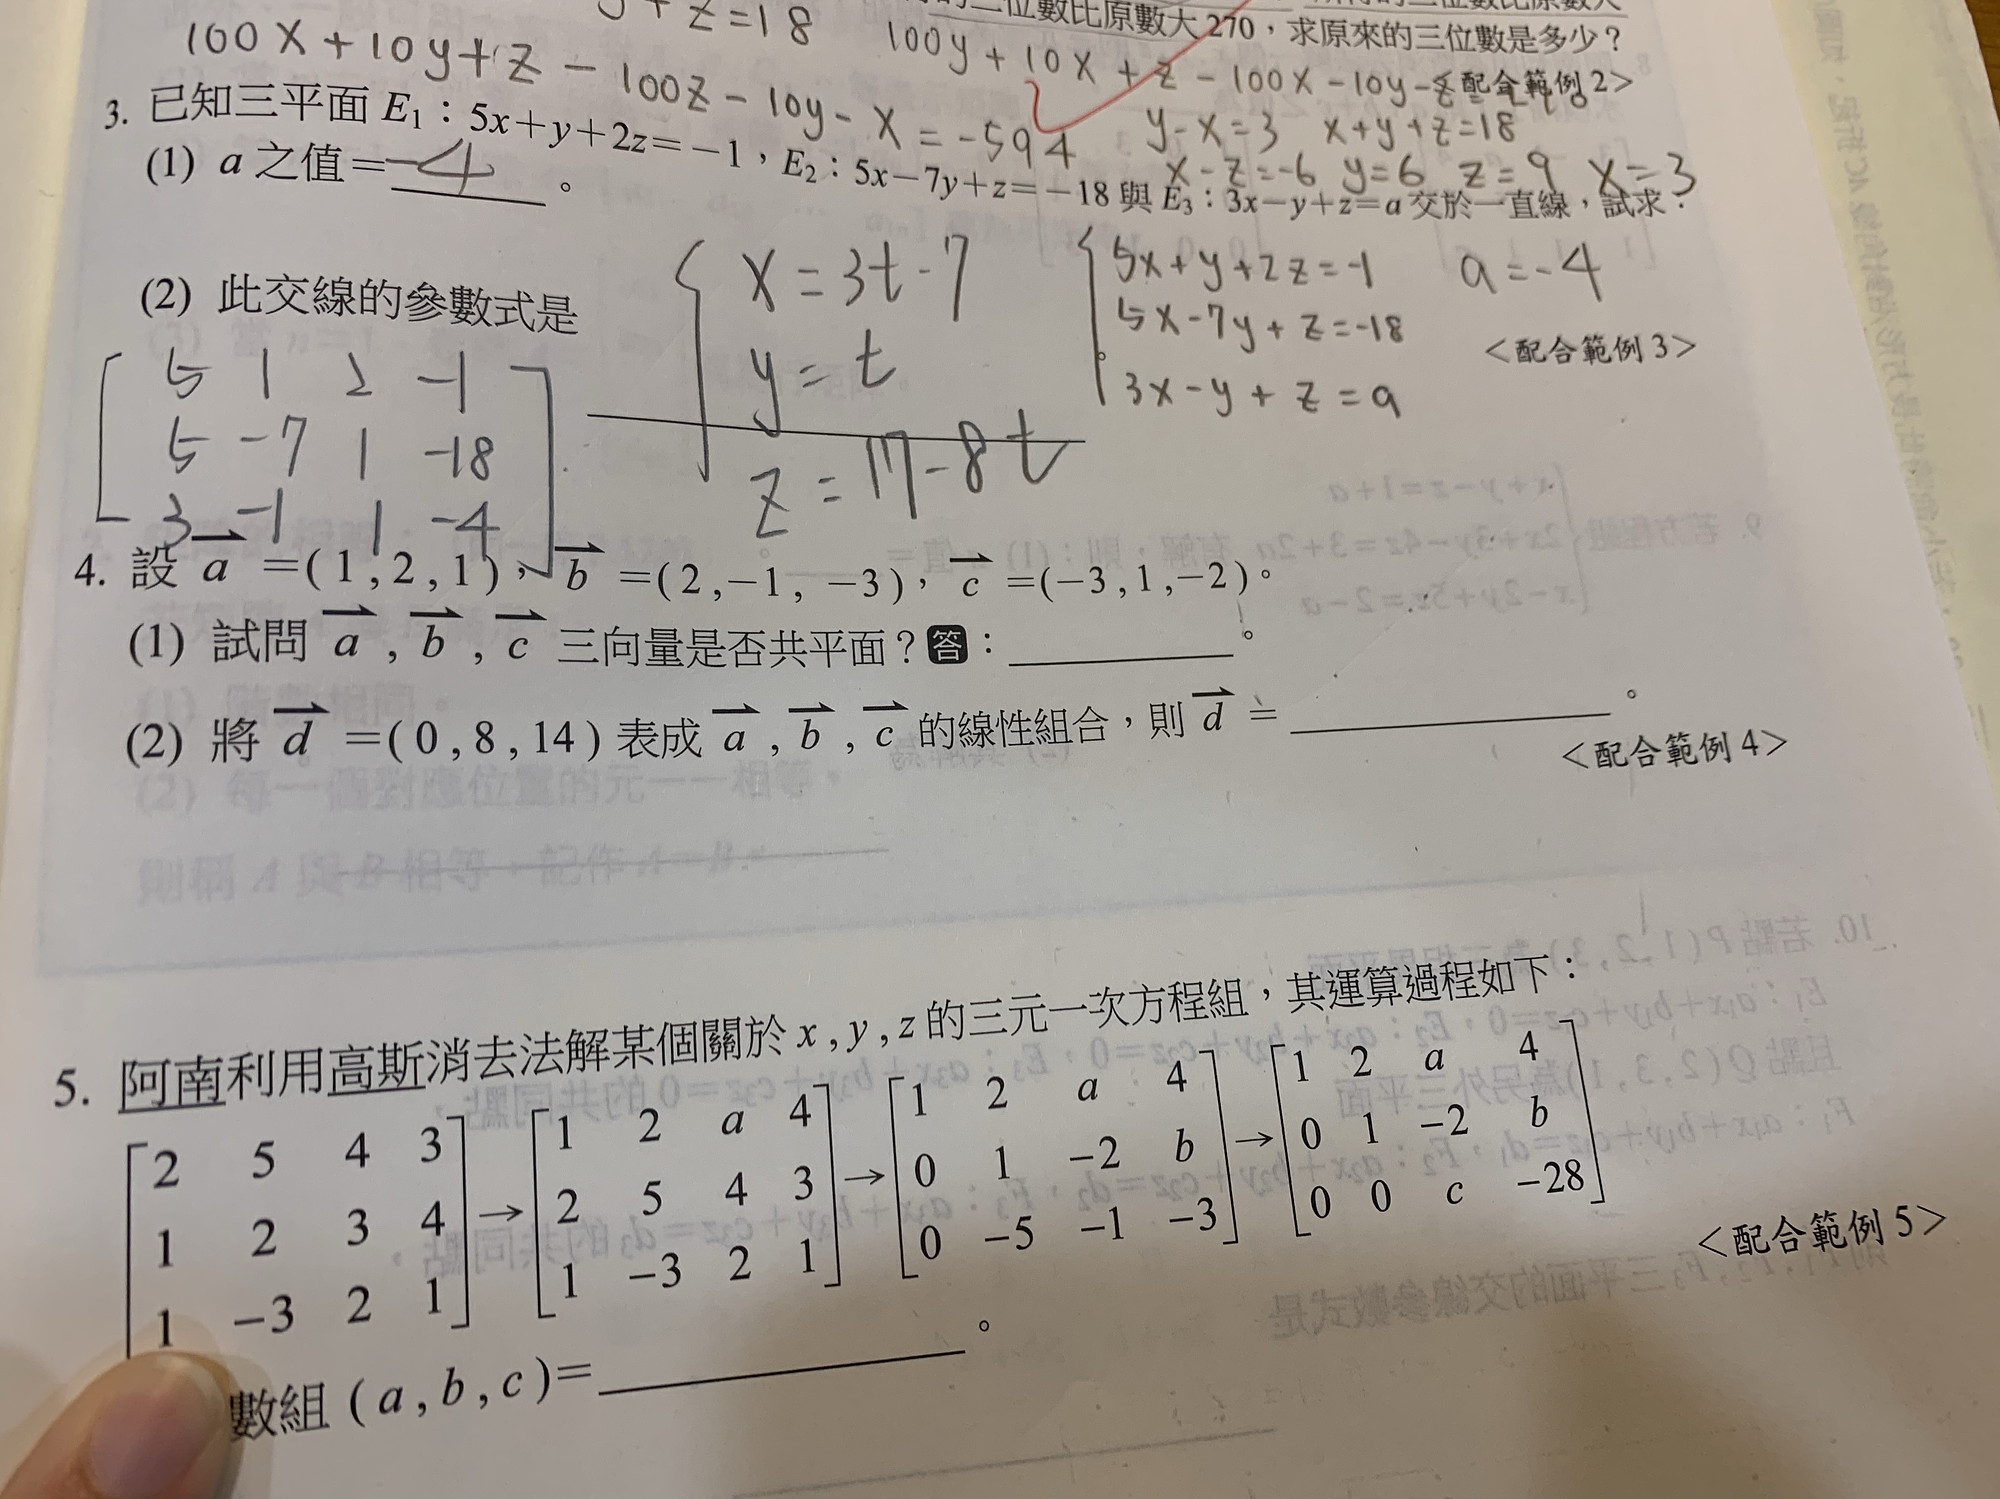 y+z=18
的三位數比原數大270，求原來的三位數是多少？
100x+10y+z-100z-10y-x=-594
100y+10x+z-100x-10y-z
<配合範例2>
y-x=3 x+y+z=18
x-z=-6 y=6 z=9 x=3
3. 已知三平面 E₁：5x+y+2z=-1，E₂：5x-7y+z=-18與 E₃：3x-y+z=a 交於一直線，試求：
(1) a 之值=-4。
(2) 此交線的參數式是
{ x=3t-7
y=t
z=17-8t
{ 5x+y+2z=-1 a=-4
5x-7y+z=-18
3x-y+z=a
。
<配合範例3>
5 1 2 -1
5 -7 1 -18
3 -1 1 -4
4. 設 a =(1,2,1)，b =(2,-1,-3)，c =(-3,1,-2)。
(1) 試問 a , b , c 三向量是否共平面？答：。
(2) 將 d =(0,8,14) 表成 a , b , c 的線性組合，則 d = 。
<配合範例4>
5. 阿南利用高斯消去法解某個關於 x,y,z 的三元一次方程組，其運算過程如下：
[2 5 4 3] [1 2 a 4] [1 2 a 4] [1 2 a 4]
[1 2 3 4] → [2 5 4 3] → [0 1 -2 b] → [0 1 -2 b]
[1 -3 2 1] [1 -3 2 1] [0 -5 -1 -3] [0 0 c -28]
<配合範例5>
數組 (a,b,c)= 。